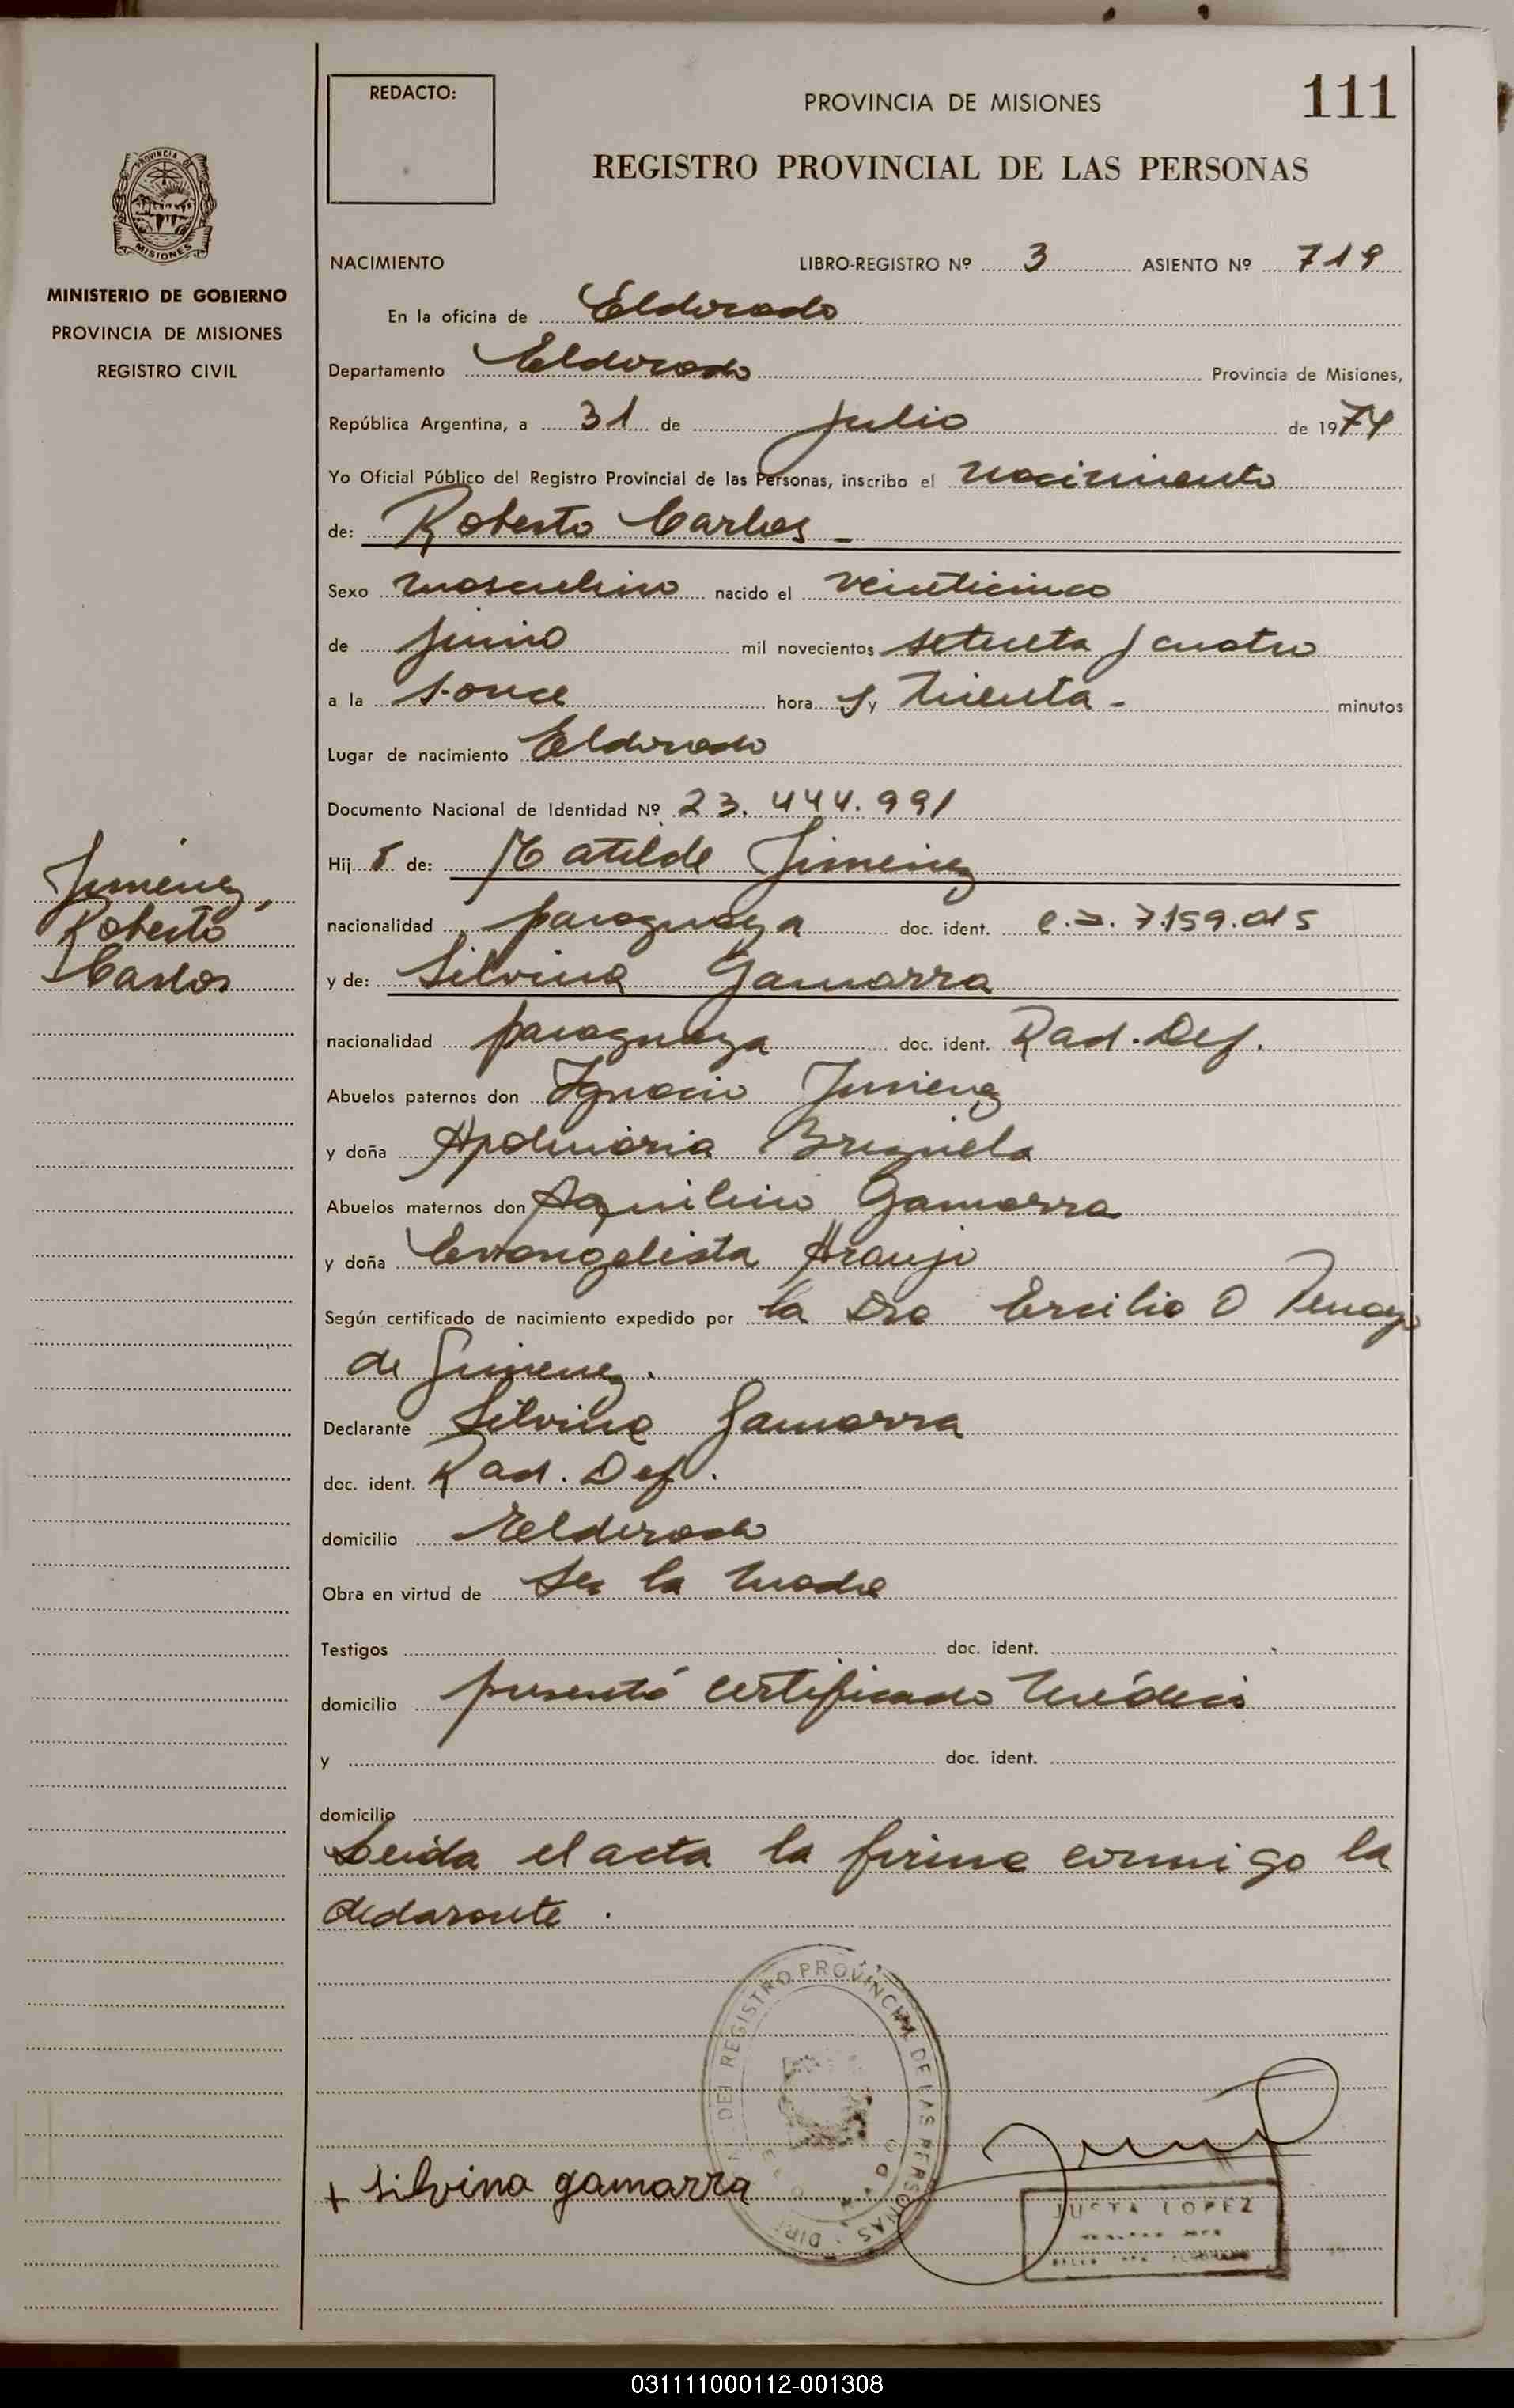 REDACTO:
PROVINCIA DE MISIONES
111
REGISTRO PROVINCIAL DE LAS PERSONAS
PROVINCIA DE
MISIONES
MINISTERIO DE GOBIERNO
PROVINCIA DE MISIONES
REGISTRO CIVIL
NACIMIENTO LIBRO-REGISTRO Nº 3 ASIENTO Nº 719
En la oficina de Eldorado
Departamento Eldorado Provincia de Misiones,
República Argentina, a 31 de Julio de 1974
Yo Oficial Público del Registro Provincial de las Personas, inscribo el nacimiento
de: Roberto Carlos -
Sexo masculino nacido el veinticinco
de junio mil novecientos setenta y cuatro
a la s once hora s y treinta - minutos
Lugar de nacimiento Eldorado
Documento Nacional de Identidad Nº 23.444.991
Hij o de: Matilde Jimenez
Jimenez,
Roberto
Carlos
nacionalidad paraguaya doc. ident. 7.159.015
y de: Silvina Gamarra
nacionalidad paraguaya doc. ident. Rad. Def.
Abuelos paternos don Ignacio Jimenez
y doña Apolinaria Brizuela
Abuelos maternos don Aquilino Gamarra
y doña Evangelista Araujo
Según certificado de nacimiento expedido por la Dra Ercilia O
de Gimenez.
Declarante Silvina Gamarra
doc. ident. Rad. Def.
domicilio Eldorado
Obra en virtud de ser la madre
Testigos doc. ident.
domicilio presentó certificado médico
y doc. ident.
domicilio
Leida el acta la firma conmigo la
declarante.
DEL REGISTRO PROVINCIAL DE LAS PERSONAS
+ silvina gamarra
JUSTA LOPEZ
031111000112-001308